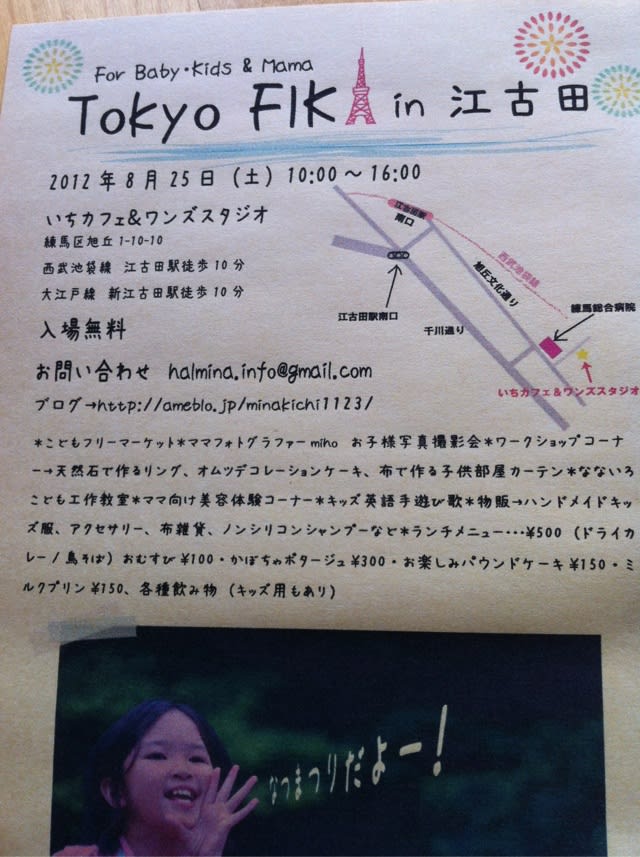 For Baby・Kids & Mama
Tokyo FIKA in 江古田
2012年8月25日（土）10:00〜16:00
いちカフェ&ワンズスタジオ
練馬区旭丘1-10-10
西武池袋線 江古田駅徒歩10分
大江戸線 新江古田駅徒歩10分
入場無料
お問い合わせ halmina.info@gmail.com
ブログ→http://ameblo.jp/minakichi1123/
江古田駅
南口
西武池袋線
旭丘文化通り
練馬総合病院
江古田駅南口
千川通り
いちカフェ&ワンズスタジオ
*こどもフリーマーケット*ママフォトグラファーmiho お子様写真撮影会*ワークショップコーナ
ー→天然石で作るリング、オムツデコレーションケーキ、布で作る子供部屋カーテン*なないろ
こども工作教室*ママ向け美容体験コーナー*キッズ英語手遊び歌*物販→ハンドメイドキッ
ズ服、アクセサリー、布雑貨、ノンシリコンシャンプーなど*ランチメニュー・・・¥500（ドライカ
レー/鳥そば）おむすび¥100・かぼちゃポタージュ¥300・お楽しみパウンドケーキ¥150・ミ
ルクプリン¥150、各種飲み物（キッズ用もあり）
なつまつりだよー！